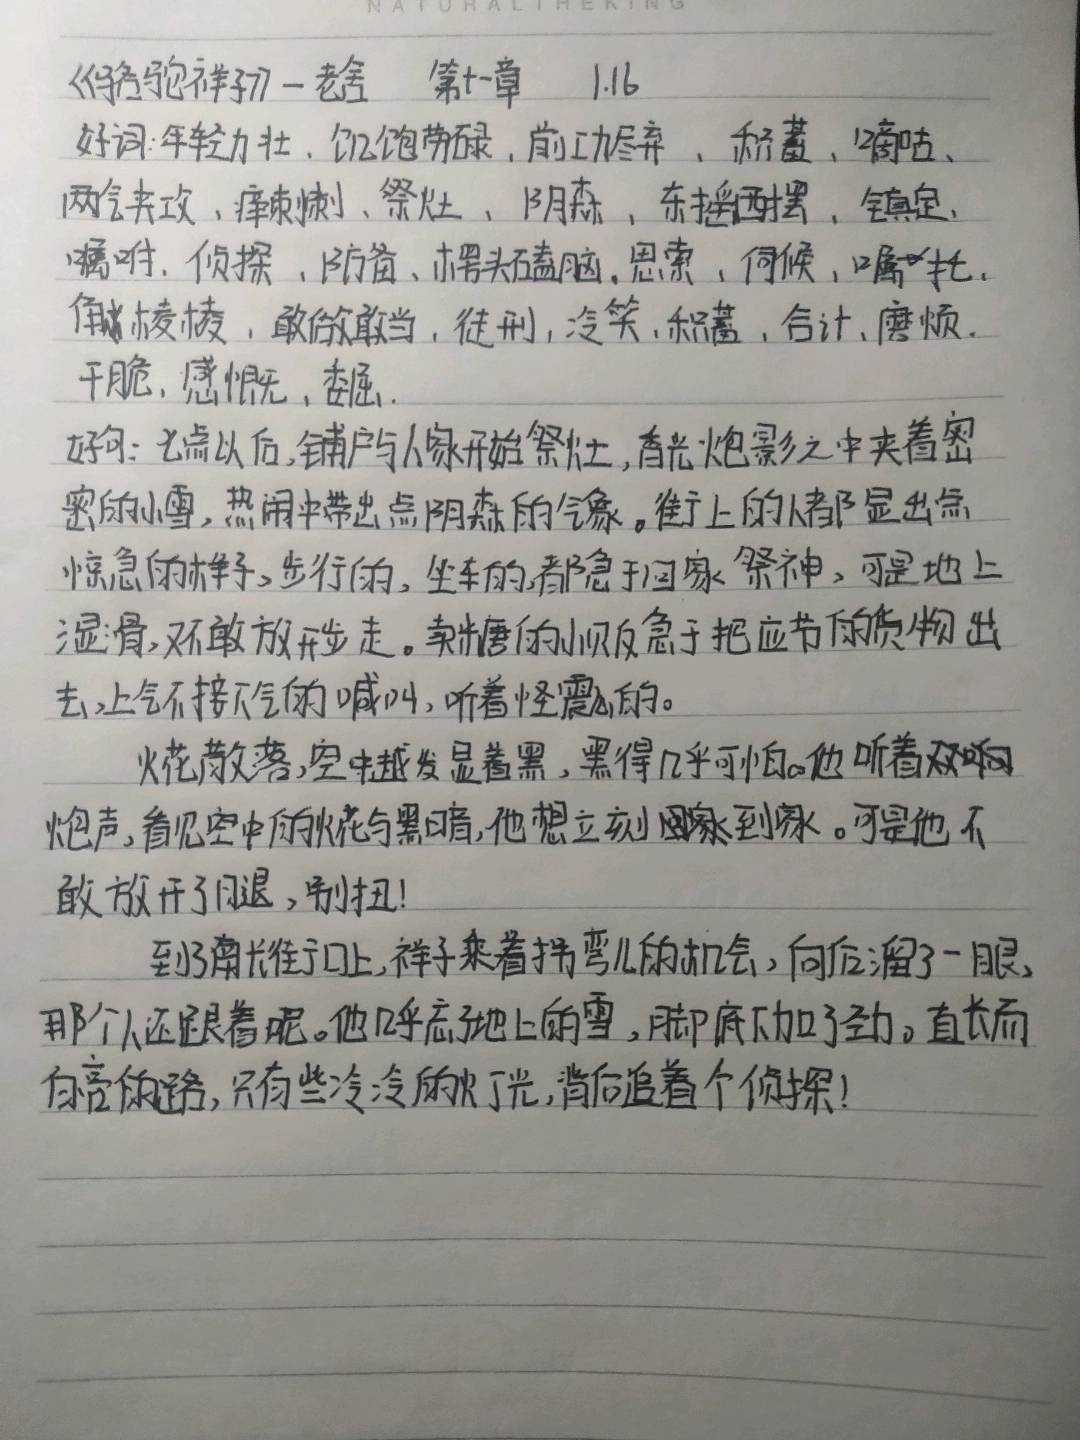 NATURALTHEKING
《骆驼祥子》—老舍 第十一章 1.16
好词:年轻力壮、饥饱劳碌、前功尽弃、积蓄、嘀咕、
两气夹攻、痒刺刺、祭灶、阴森、东摇西摆、镇定、
嘱咐、侦探、防备、楞头磕脑、思索、伺候、嘱托、
角棱棱、敢做敢当、徒刑、冷笑、积蓄、合计、磨烦、
干脆、感慨、委屈.
好句:七点以后,铺户与人家开始祭灶,香光炮影之中夹着密
密的小雪,热闹中带出点阴森的气象。街上的人都显出点
惊急的样子,步行的,坐车的,都急于回家祭神,可是地上
湿滑,又不敢放开步走。卖糖的小贩急于把应节的货物出
去,上气不接下气的喊叫,听着怪震心的。
火花散落,空中越发显着黑,黑得几乎可怕。他听着双响
炮声,看见空中的火花与黑暗,他想立刻到家。可是他不
敢放开了腿,别扭!
到了南长街口上,祥子乘着拐弯儿的机会,向后溜了一眼,
那个人还跟着呢。他几乎忘了地上的雪,脚底下加了劲。直长而
白亮的路,只有些冷冷的灯光,背后追着个侦探!